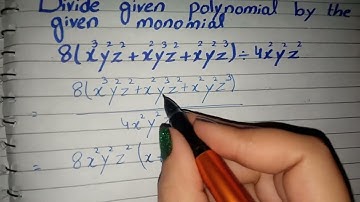 Divide given polynomial by the
given monomial
8(x³y²z²+x²y³z²+x²y²z³)÷4x²y²z²
8(x³y²z²+x²y³z²+x²y²z³)
4x²y²
= 8x²y²z²(x+